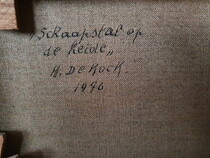 „Schaapstal op
de heide„
H. De Kock.
1996